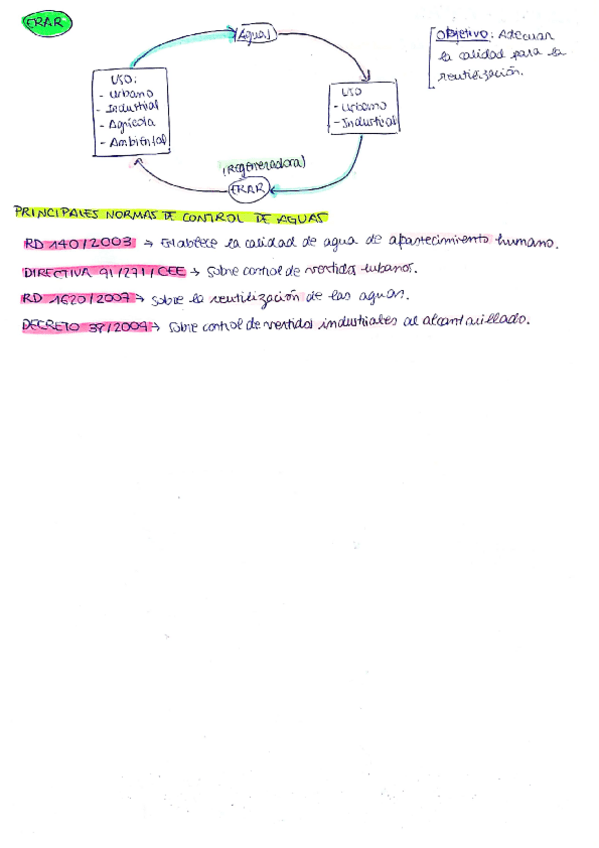 ERAR
Aguas
Objetivo: Adecuar
la calidad para la
reutilización.
USO:
- Urbano
- Industrial
- Agrícola
- Ambiental
USO
- Urbano
- Industrial
(Regeneradora)
ERAR
PRINCIPALES NORMAS DE CONTROL DE AGUAS
RD 140/2003 → Establece la calidad de agua de abastecimiento humano.
DIRECTIVA 91/271/CEE → Sobre control de vertidos urbanos.
RD 1620/2007 → sobre la reutilización de las aguas.
DECRETO 37/2009 → Sobre control de vertidos industriales al alcantarillado.